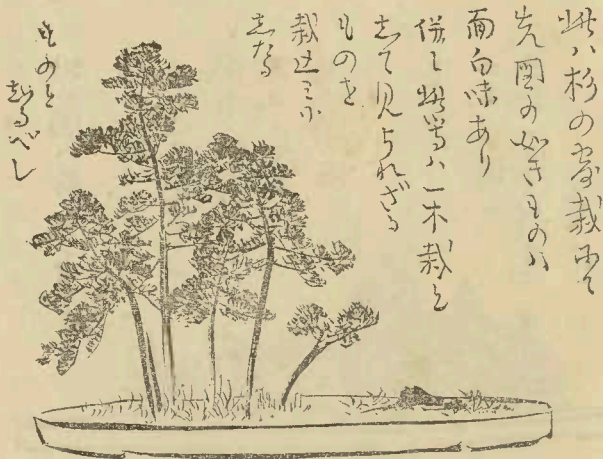 此ハ杉の寄栽にて
先図の如きものハ
面白味あり
併し此等ハ一本栽と
志て見られざる
ものを
栽込ミに
志たる
ものと
知るべし